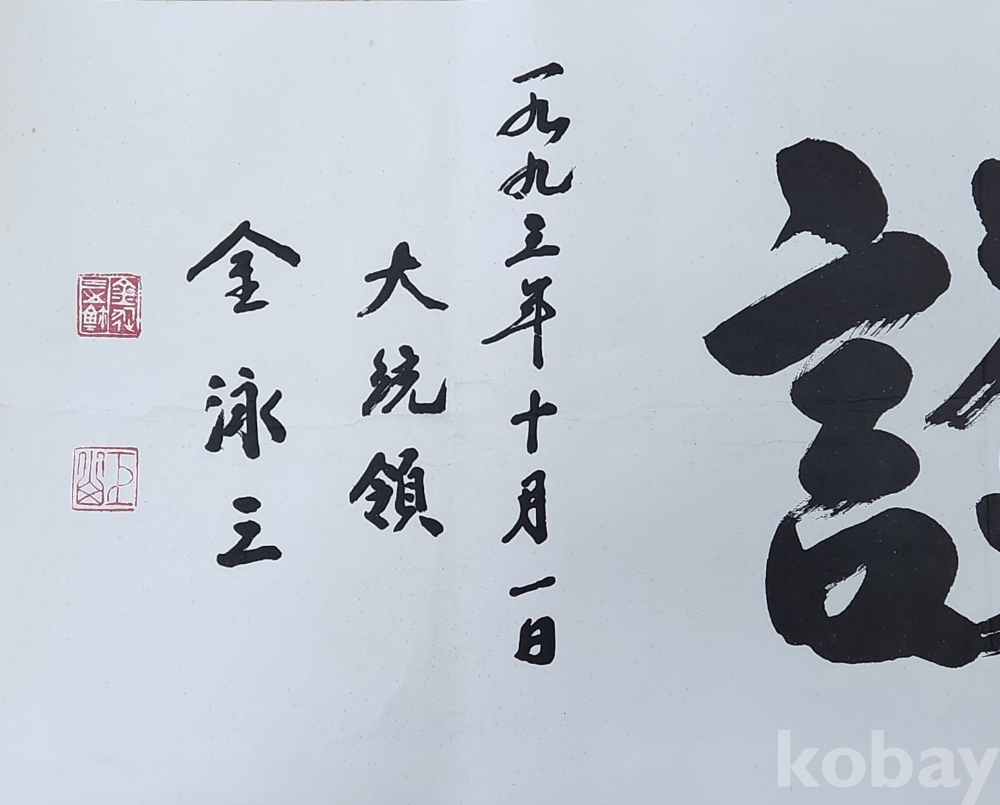 一九九三年十月一日
大統領
金泳三
kobay